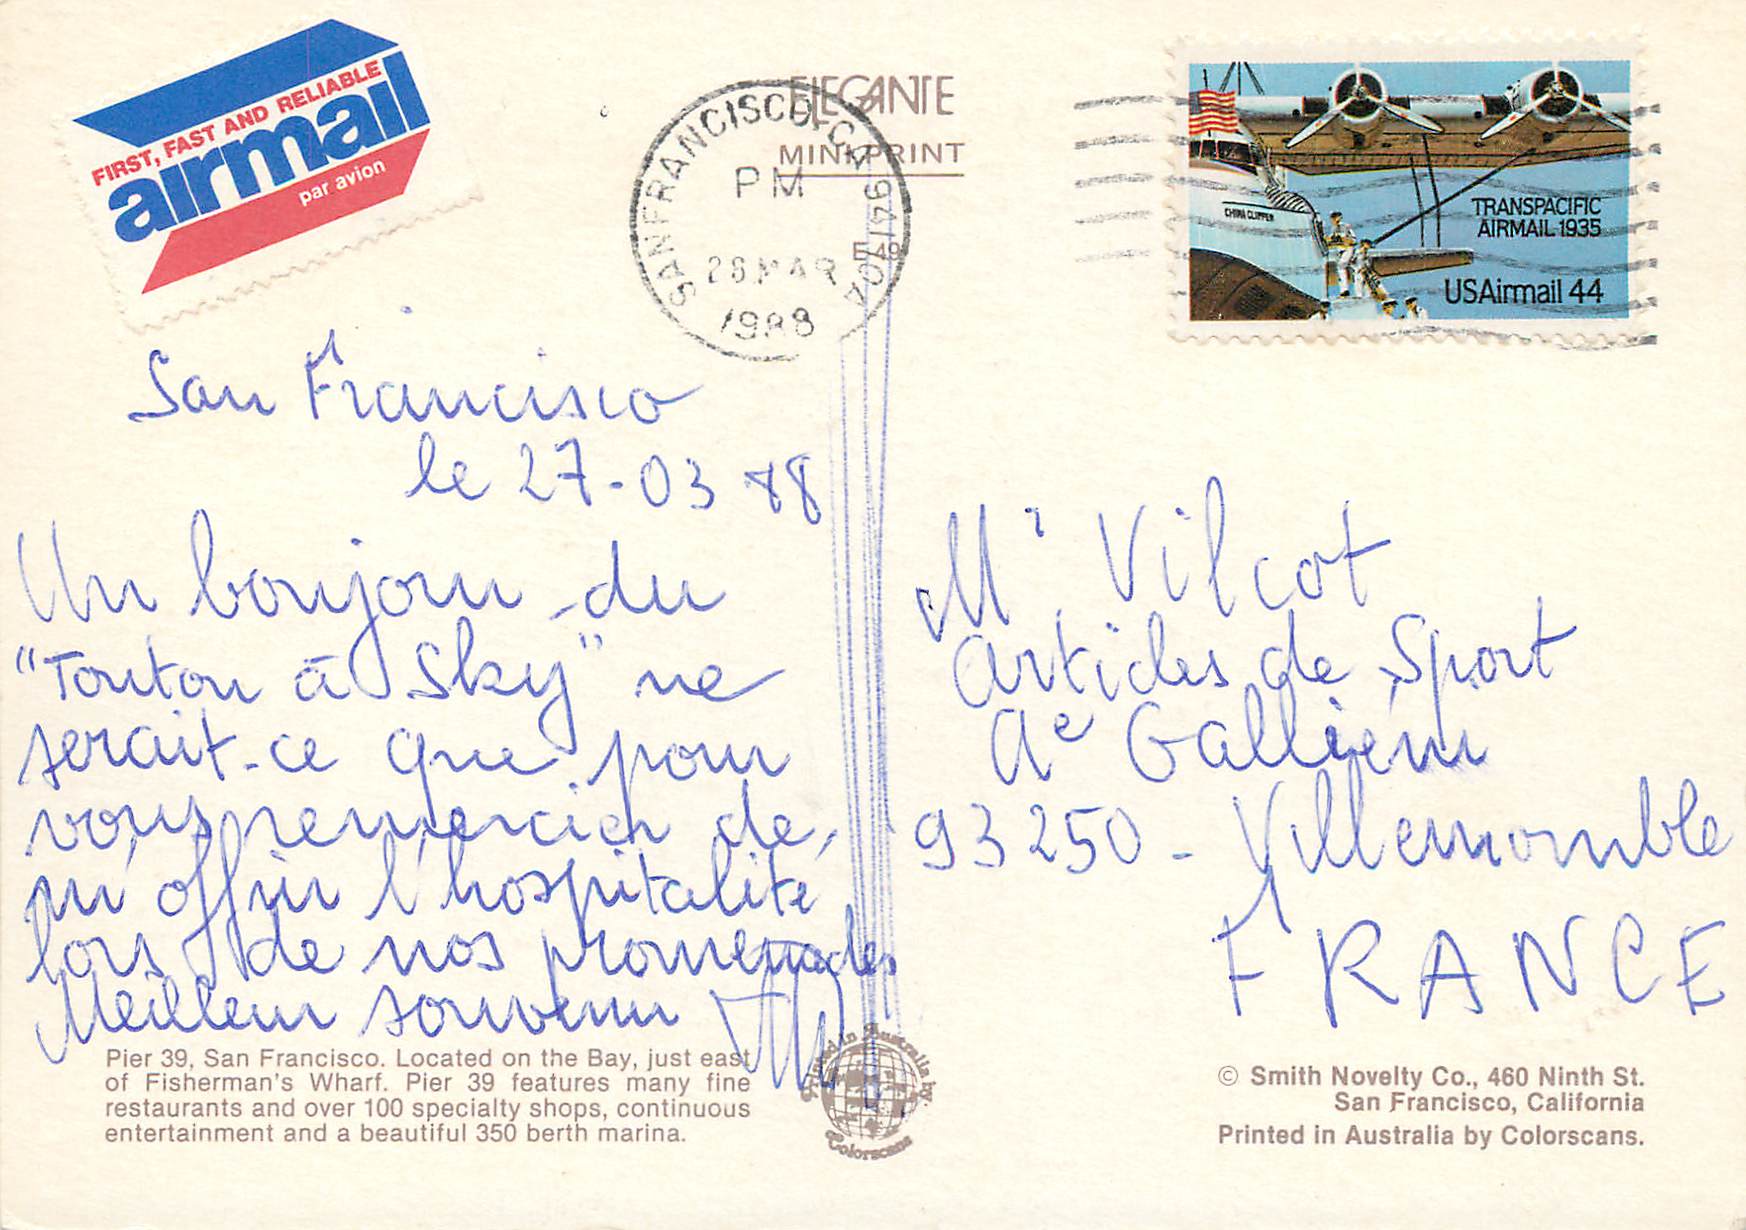 FIRST, FAST AND RELIABLE
airmail
par avion
ELEGANTE
MINI PRINT
SAN FRANCISCO, CA 941
PM
28 MAR
1988
E 49
CHINA CLIPPER
TRANSPACIFIC
AIRMAIL 1935
USAirmail 44
San Francisco
le 27-03 88
Un bonjour du
"Toutou à Sky" ne
serait-ce que pour
vous remercier de
m'offrir l'hospitalité
lors de nos promenades
Meilleur souvenir
Mr Vilcot
Articles de Sport
Ae Galliéni
93250 - Villemomble
FRANCE
Pier 39, San Francisco. Located on the Bay, just east
of Fisherman's Wharf. Pier 39 features many fine
restaurants and over 100 specialty shops, continuous
entertainment and a beautiful 350 berth marina.
Printed in Australia by
Colorscans
© Smith Novelty Co., 460 Ninth St.
San Francisco, California
Printed in Australia by Colorscans.